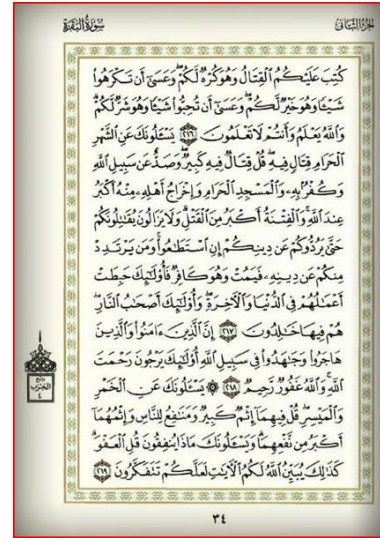 الجزء الثاني
سورة البقرة
كُتِبَ عَلَيْكُمُ الْقِتَالُ وَهُوَ كُرْهٌ لَّكُمْ وَعَسَىٰ أَن تَكْرَهُوا
شَيْئًا وَهُوَ خَيْرٌ لَّكُمْ وَعَسَىٰ أَن تُحِبُّوا شَيْئًا وَهُوَ شَرٌّ لَّكُمْ
وَاللَّهُ يَعْلَمُ وَأَنتُمْ لَا تَعْلَمُونَ ٢١٦ يَسْـَٔلُونَكَ عَنِ الشَّهْرِ
الْحَرَامِ قِتَالٍ فِيهِ قُلْ قِتَالٌ فِيهِ كَبِيرٌ وَصَدٌّ عَن سَبِيلِ اللَّهِ
وَكُفْرٌ بِهِۦ وَالْمَسْجِدِ الْحَرَامِ وَإِخْرَاجُ أَهْلِهِۦ مِنْهُ أَكْبَرُ
عِندَ اللَّهِ وَالْفِتْنَةُ أَكْبَرُ مِنَ الْقَتْلِ وَلَا يَزَالُونَ يُقَٰتِلُونَكُمْ
حَتَّىٰ يَرُدُّوكُمْ عَن دِينِكُمْ إِنِ اسْتَطَٰعُوا وَمَن يَرْتَدِدْ
مِنكُمْ عَن دِينِهِۦ فَيَمُتْ وَهُوَ كَافِرٌ فَأُولَٰٓئِكَ حَبِطَتْ
أَعْمَٰلُهُمْ فِي الدُّنْيَا وَالْـَٔاخِرَةِ وَأُولَٰٓئِكَ أَصْحَٰبُ النَّارِ
هُمْ فِيهَا خَٰلِدُونَ ٢١٧ إِنَّ الَّذِينَ ءَامَنُوا وَالَّذِينَ
هَاجَرُوا وَجَٰهَدُوا فِي سَبِيلِ اللَّهِ أُولَٰٓئِكَ يَرْجُونَ رَحْمَتَ
اللَّهِ وَاللَّهُ غَفُورٌ رَّحِيمٌ ٢١٨ ۞ يَسْـَٔلُونَكَ عَنِ الْخَمْرِ
وَالْمَيْسِرِ قُلْ فِيهِمَا إِثْمٌ كَبِيرٌ وَمَنَٰفِعُ لِلنَّاسِ وَإِثْمُهُمَا
أَكْبَرُ مِن نَّفْعِهِمَا وَيَسْـَٔلُونَكَ مَاذَا يُنفِقُونَ قُلِ الْعَفْوَ
كَذَٰلِكَ يُبَيِّنُ اللَّهُ لَكُمُ الْـَٔايَٰتِ لَعَلَّكُمْ تَتَفَكَّرُونَ ٢١٩
ربع
الحزب
٤
٣٤